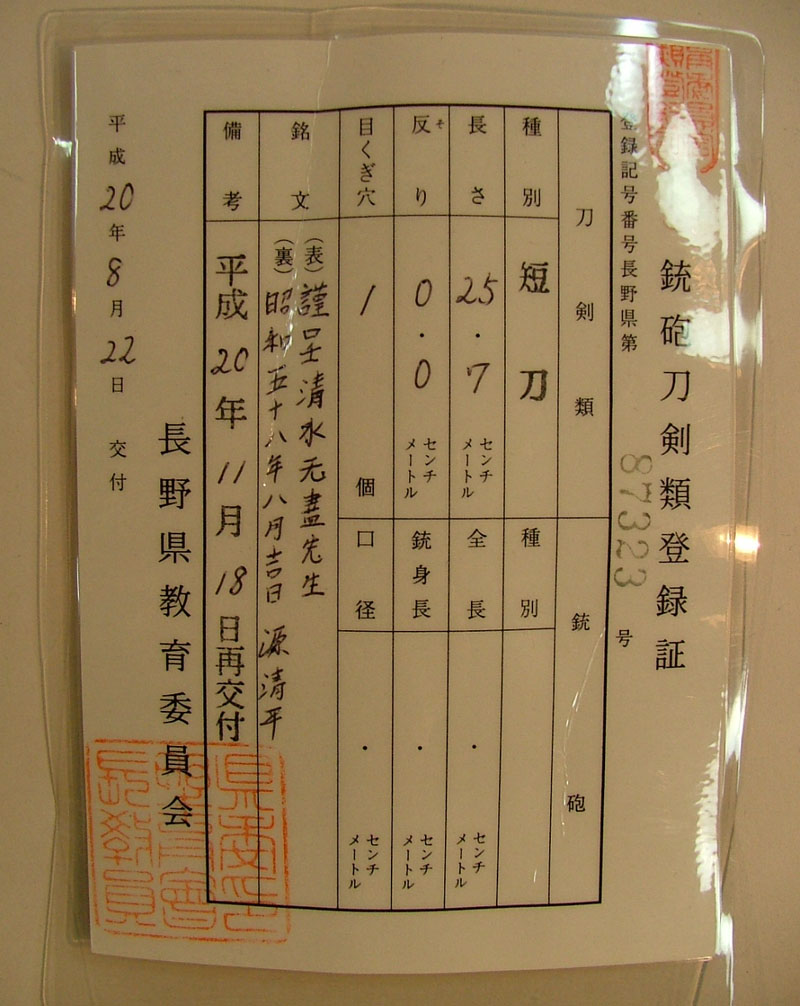 銃砲刀剣類登録証
登録記号番号長野県第 87323 号
刀剣類
種別 短刀
長さ 25.7 センチメートル
反り そ 0.0 センチメートル
目くぎ穴 1 個
銃砲
種別
全長 ・ センチメートル
銃身長 ・ センチメートル
口径 ・ センチメートル
銘文
(表) 謹呈清水无盡先生
(裏) 昭和五十八年八月吉日 源清平
備考 平成20年11月18日再交付
長野県教育委員会
平成20年8月22日 交付